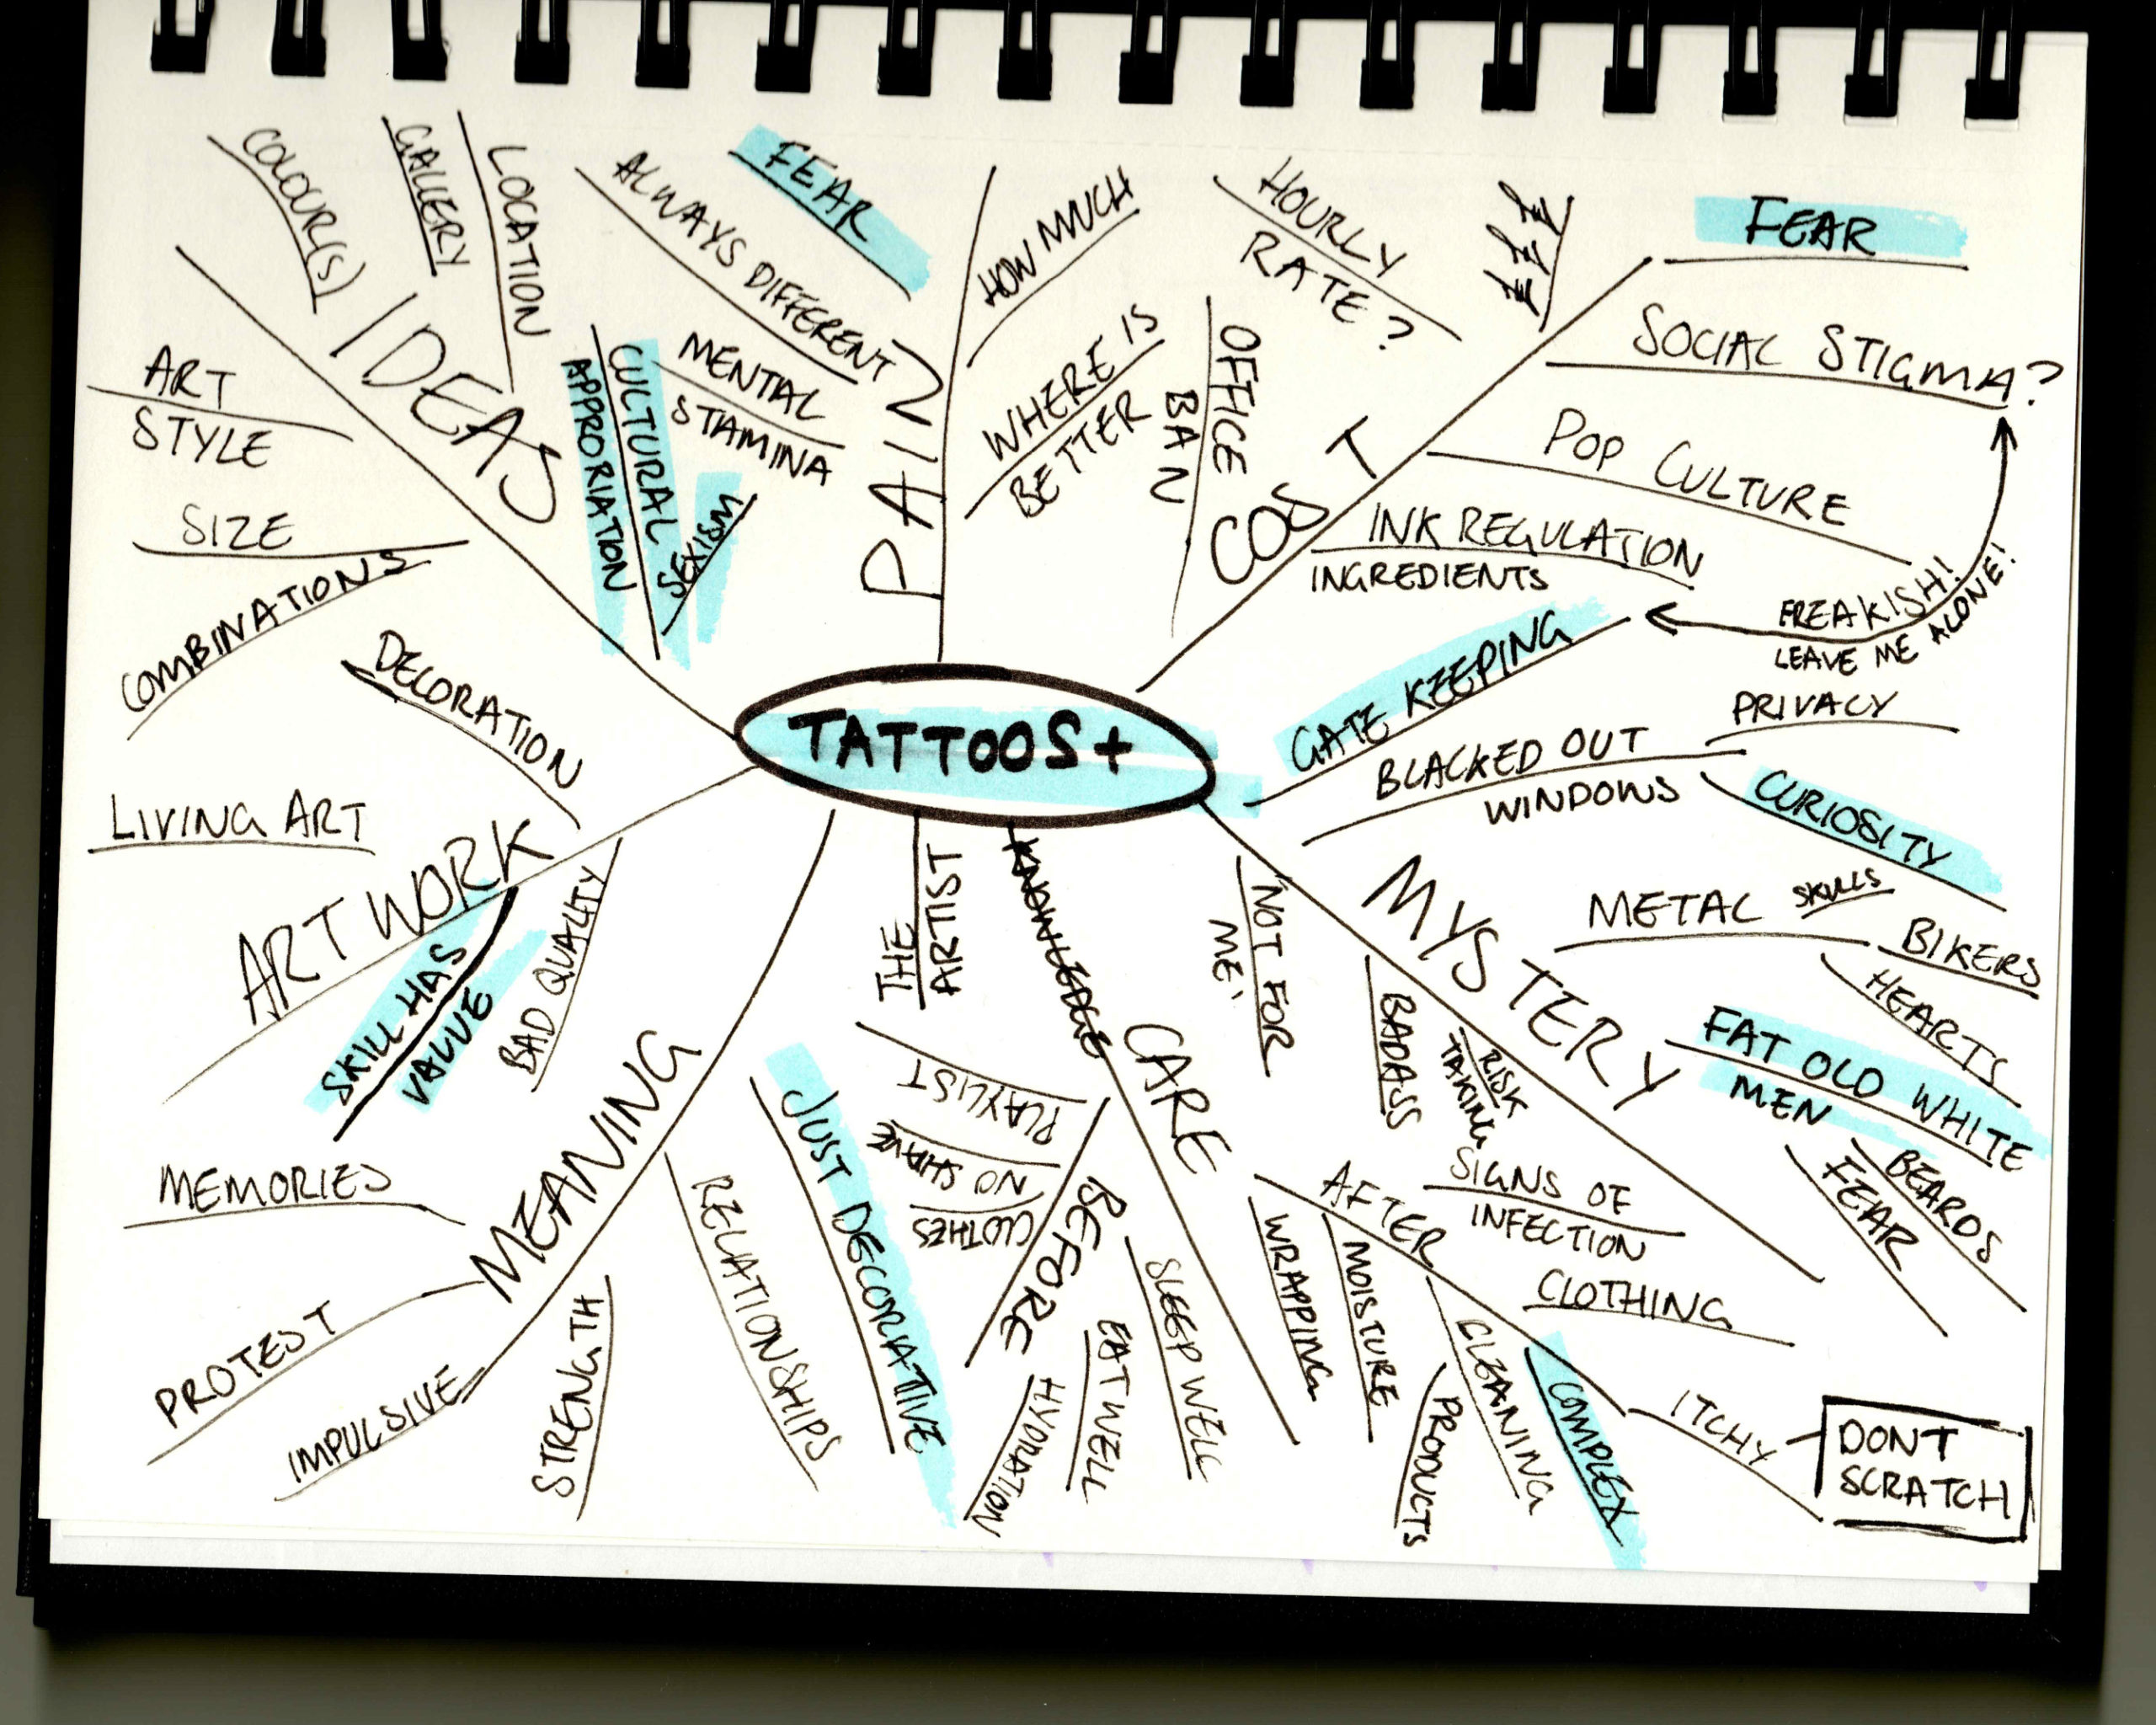 COLOUR(S)
GALLERY
LOCATION
IDEAS
ART
STYLE
SIZE
COMBINATIONS
CULTURAL
APPRORIATION
SEXISM
FEAR
ALWAYS DIFFERENT
MENTAL
STAMINA
PAIN
HOW MUCH
WHERE IS
BETTER
OFFICE
BAN
HOURLY
RATE?
£££
COST
FEAR
SOCIAL STIGMA?
POP CULTURE
INK REGULATION
INGREDIENTS
FREAKISH!
LEAVE ME ALONE!
GATE KEEPING
TATTOOS+
BLACKED OUT
WINDOWS
PRIVACY
CURIOSITY
MYSTERY
METAL
SKULLS
BIKERS
HEARTS
FAT OLD WHITE
MEN
BEARDS
FEAR
NOT FOR
ME'
BADASS
RISK
TAKING
DECORATION
LIVING ART
ARTWORK
SKILL HAS
VALUE
BAD QUALITY
MEANING
MEMORIES
PROTEST
IMPULSIVE
STRENGTH
RELATIONSHIPS
JUST DECORATIVE
THE
ARTIST
KNOWLEDGE
CARE
BEFORE
PLAYLIST
NO SHAVE
CLOTHES
HYDRATION
EAT WELL
SLEEP WELL
AFTER
SIGNS OF
INFECTION
CLOTHING
WRAPPING
MOISTURE
CLEANING
PRODUCTS
COMPLEX
ITCHY
DONT
SCRATCH